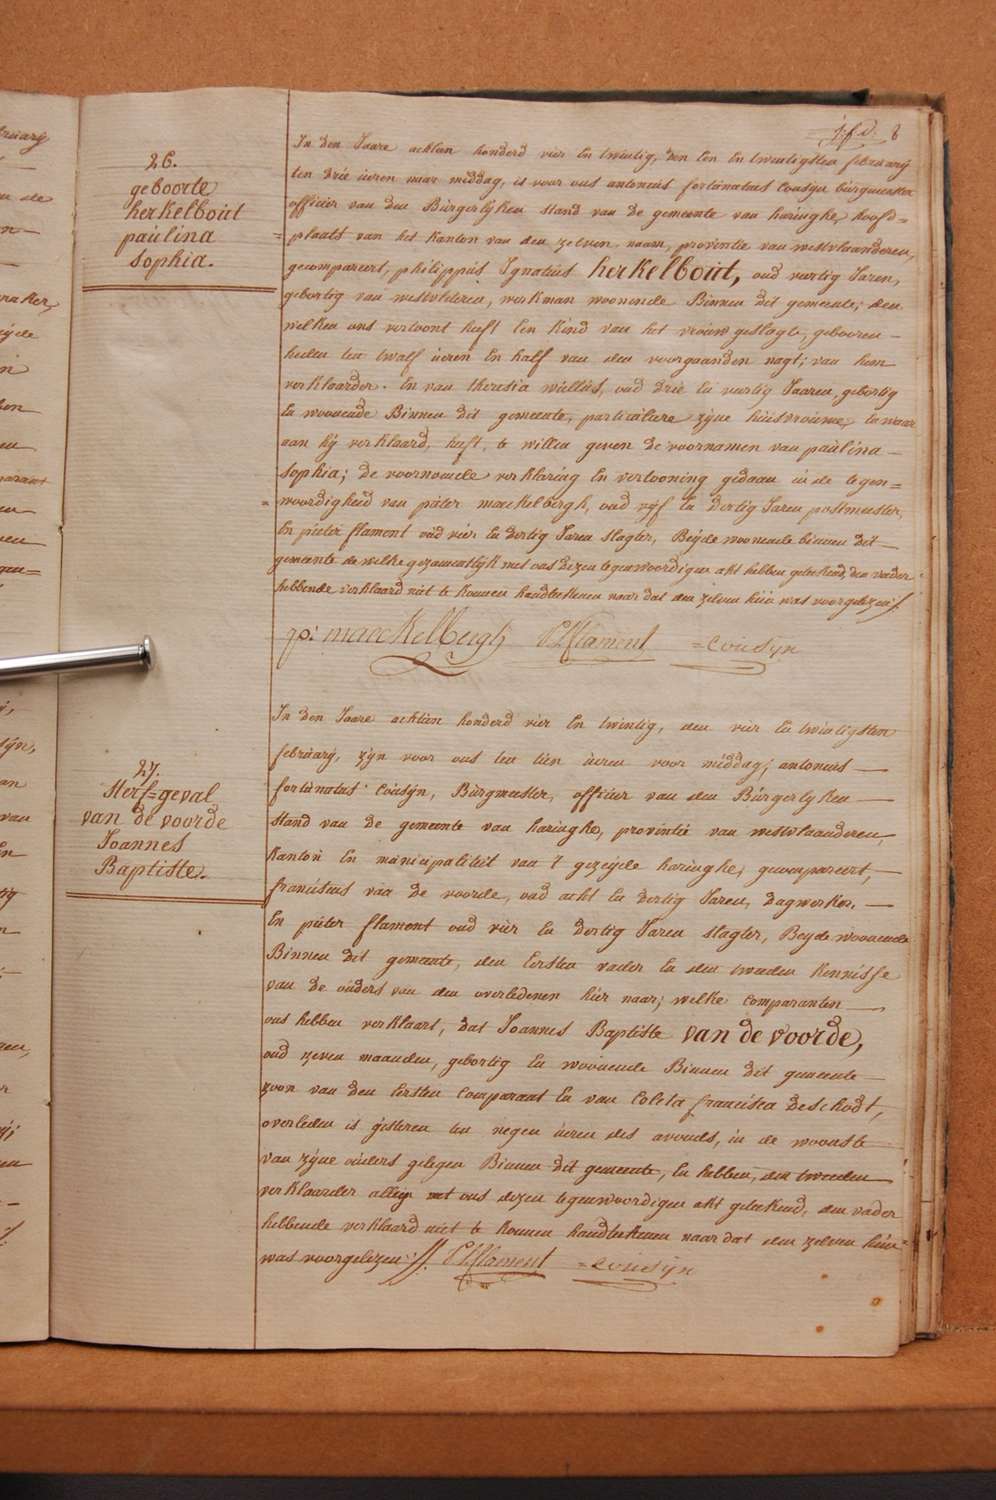 f.d. 8
26.
geboorte
herkelbout
paulina
sophia.
In den Jaare achtien honderd vier En twintig, den Een En twintigsten februarij
ten drie ueren naar middag, is voor ons antoneus fortunatus Cousijn burgmeester
officier van den Burgerlyken stand van de gemeente van haringhe, hoofd=
=plaets van het Kanton van den zelven naam, provintie van westvlaanderen,
gecompareert, philippus Ignatius herkelbout, oud veertig Jaren,
gebortig van westvleteren, werkman woonende Binnen dit gemeente; den
welken ons vertoont heeft Een Kind van het vrouw geslagte, gebooren -
heden ten twalf ueren En half van den voorgaanden nagt; van hem
verklaarder. En van theresia wullus, oud drie En veertig Jaaren, gebortig
En woonende Binnen dit gemeente, particuliere zyne huisvrouwe, En waar
aan hy verklaard heeft, te willen geven de voornamen van paulina -
sophia; de voornoemde verklaring En vertooning gedaan in de tegen=
=woordigheid van pieter maeckelbergh, oud vyf En dertig Jaren postmeester,
En pieter flament oud vier En dertig Jaren slagter, Beyde woonende binnen dit
gemeente de welke gezamentlyk met ons dezen tegenwoordigen akt hebben geteekend, den vader
hebbende verklaard niet te konnen handteekenen naar dat den zelven hun was voorgelezen ./.
p: maeckelbergh P flament =cousijn
In den Jaare achtien honderd vier En twintig, den vier En twintigsten
februarij, zyn voor ons ten tien ueren voor middag; antoneus
27.
Sterf=geval
van de voorde
Joannes
Baptiste.
fortunatus Cousijn, Burgmeester, officier van den Burgerlyken
stand van de gemeente van haringhe, provintie van westvlaanderen,
Kanton En municipaliteit van 't gezeyde haringhe, gecompareert,
franciscus van de voorde, oud acht En dertig Jaren, dagwerker.
En pieter flament oud vier En dertig Jaren slagter, Beyde woonende
Binnen dit gemeente, den Eersten vader En den tweeden Kennisse
van de ouders van den overledenen hier naar; welke comparanten
ons hebben verklaart, dat Joannes Baptiste van de voorde,
oud zeven maanden, gebortig En woonende Binnen dit gemeente
zoon van den Eersten Comparant En van Coleta francisca deschodt,
overleden is gisteren ten negen ueren des avonds, in de woonste
van zyne ouders gelegen Binnen dit gemeente, En hebben, den tweeden
verklaarder alleen met ons dezen tegenwoordigen akt geteekend, den vader
hebbende verklaard niet te konnen handteekenen naar dat den zelven hun
was voorgelezen ./. P flament =cousijn